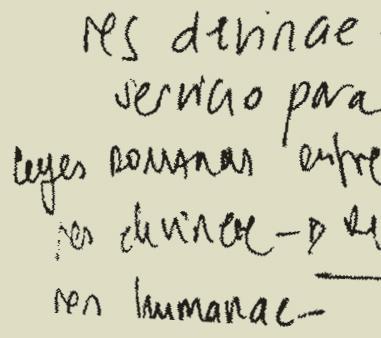 res divinae
servicio para
leyes romanas entre
res divinae →
res humanae -